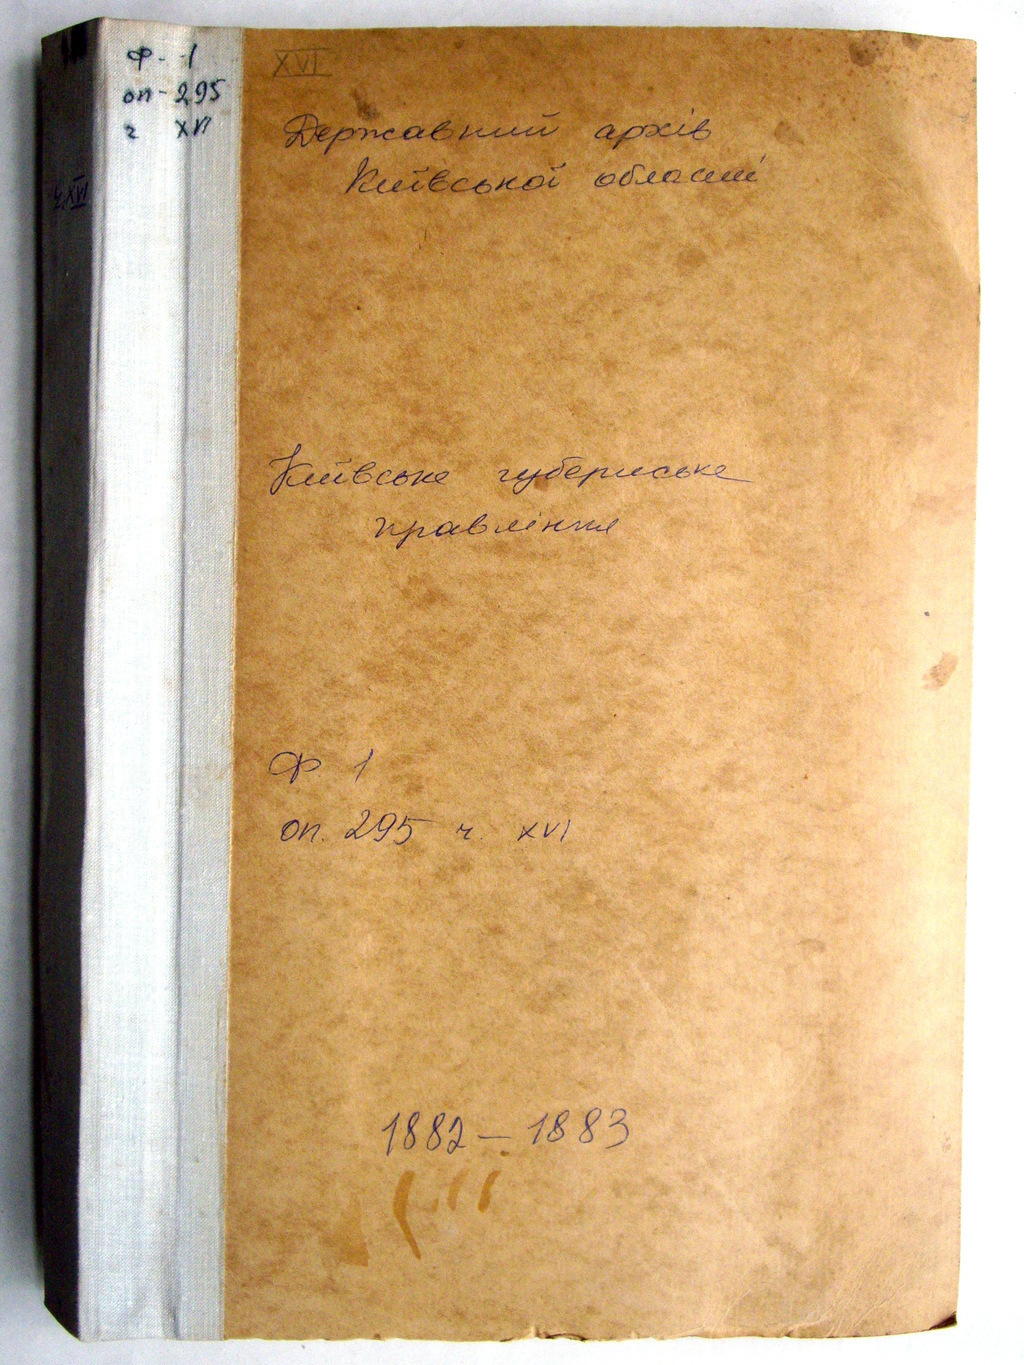 Ф-1
оп-295
ч XVI
ч.XVI
XVI
Державний архів
Київської області
Київське губернське
правління
Ф 1
оп. 295 ч. XVI
1882 – 1883